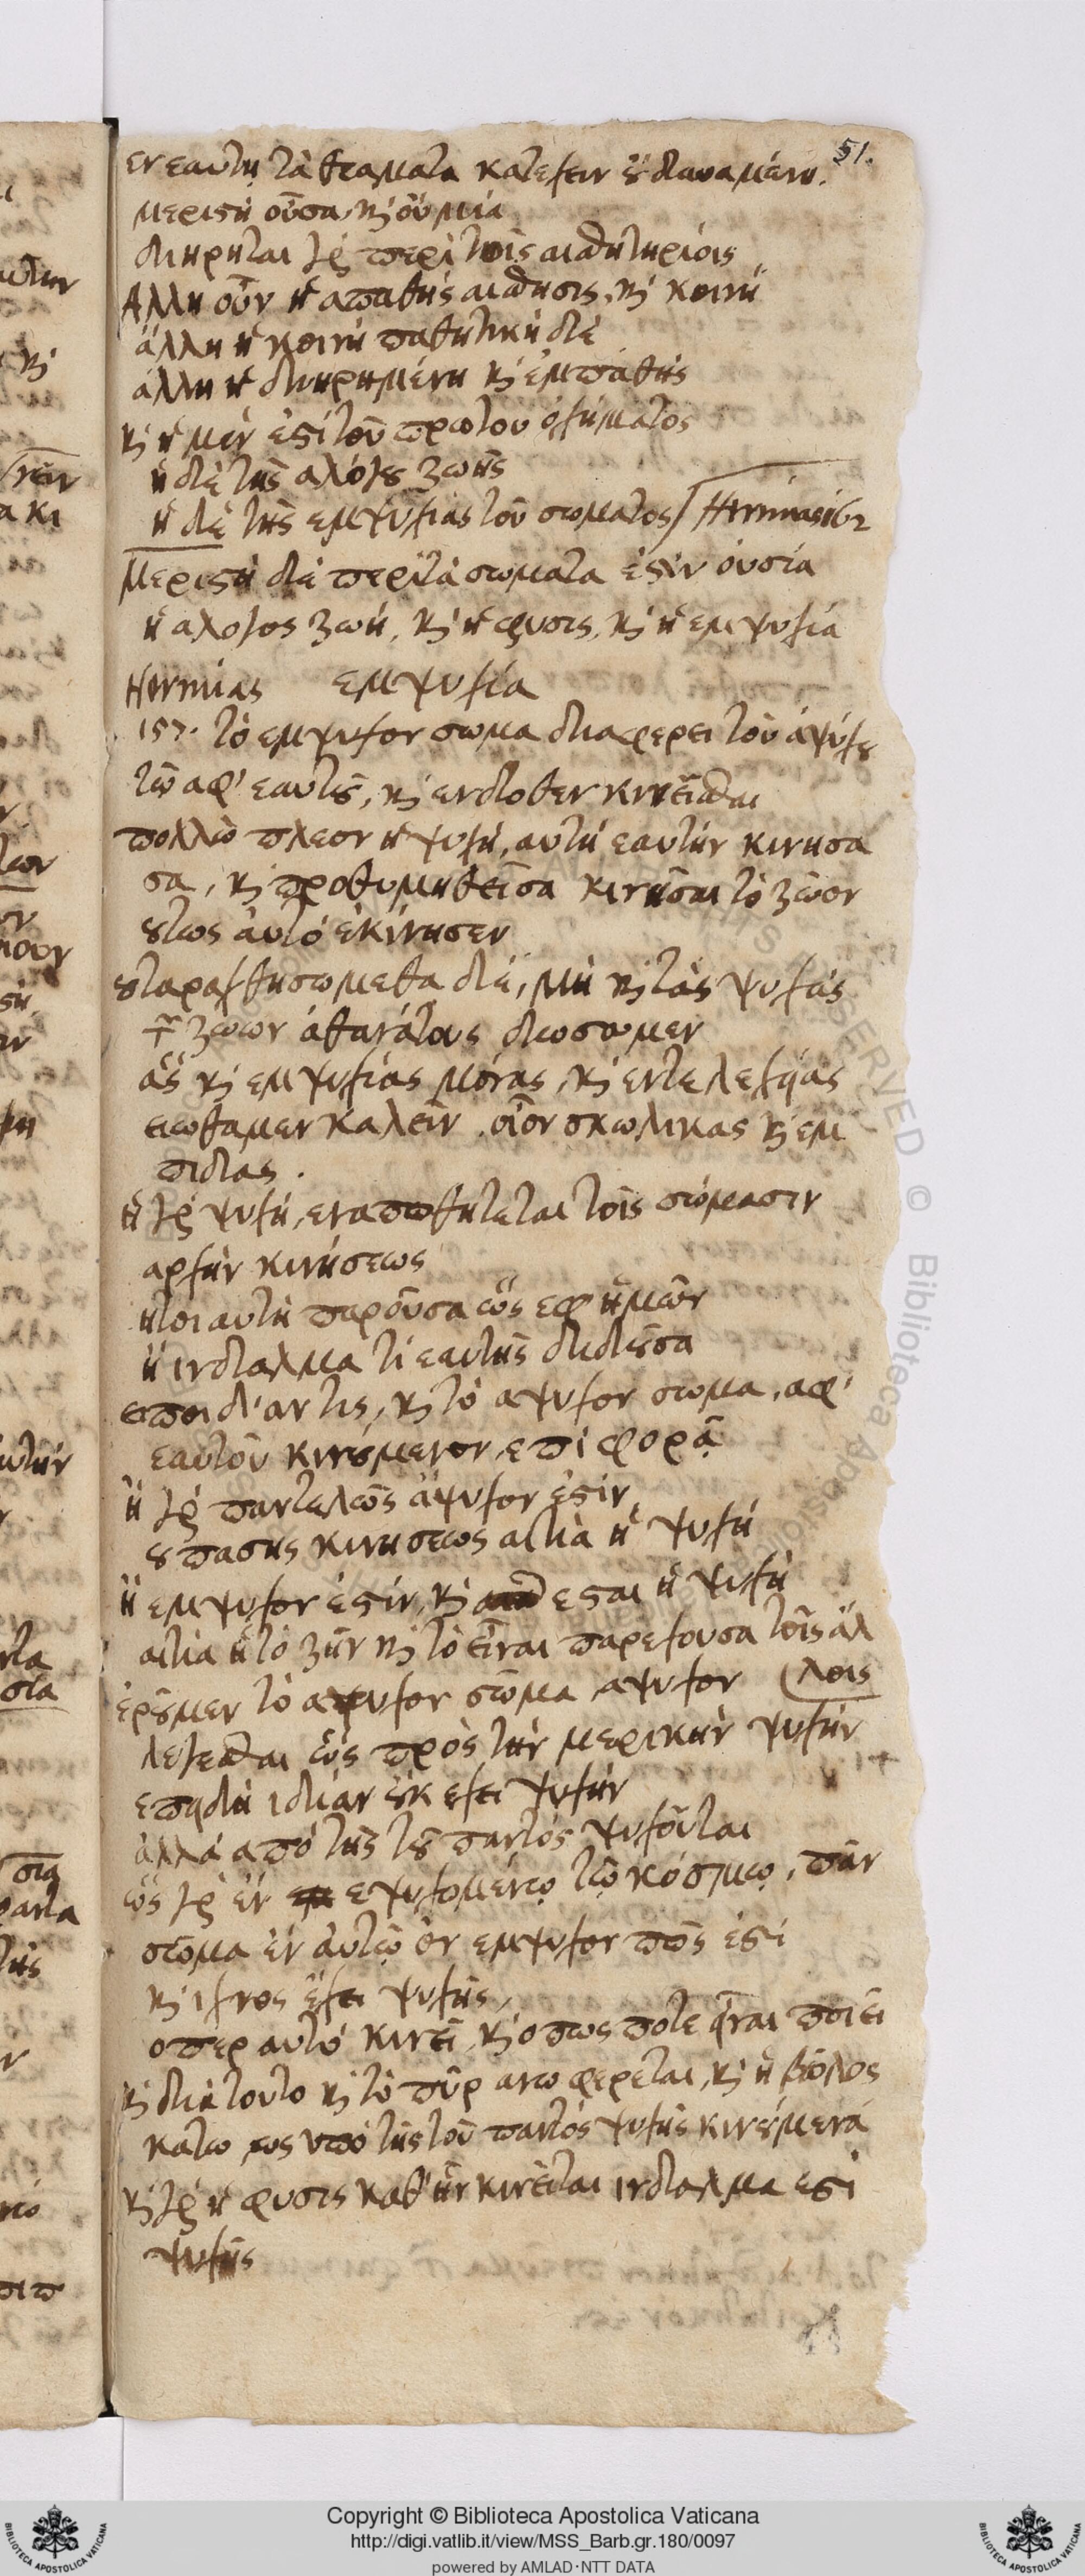 51.
εν εαυτη τὰ θεαματα κατεχειν ȣ δυναμένη.
μεριστὴ οὖσα, κ̀ οὐ μία
διῃρηται γὰρ περὶ τοῖς αισθητηρίοις
Αλλη οὖν ἡ απαθὴς αισθησις, κ̀ κοινή
ἄλλη ἡ κοινὴ παθητικὴ δὲ
άλλη ἡ διῃρημένη κ̀ ἐμπαθὴς
κ̀ ἡ μὲν ἐπὶ τοῦ πρωτου οχήματος
ἡ δὲ τῆς αλόγȣ ζωῆς
ἡ δὲ τῆς εμψυχίας τοῦ σωματος/ Hermias 162
Μεριστὴ δὲ περὶ τὰ σωματα ἐστὶν ουσία
ἡ αλογος ζωή, κ̀ ἡ φυσις, κ̀ ἡ εμψυχία
Hermias εμψυχία
157. τὸ εμψυχον σωμα διαφερει τοῦ ἀψύχȣ
τῶ αφ' εαυτȣ̃, κ̀ ενδοθεν κινεῖσθαι
πολλῶ πλεον ἡ ψυχὴ, αυτὴ εαυτὴν κινησα
σα, κ̀ προθυμηθεῖσα κινῆσαι τὸ ζῶον
ȣτως ἀυτὸ ἐκίνησεν
ȣ ταραχθησωμεθα δὲ, μὴ κ̀ τὰς ψυχὰς
τῶν ζωων ἀθανάτους δωσωμεν
ἃς κ̀ εμψυχίας μόνας, κ̀ εντελεχείας
ειωθαμεν καλεῖν. οἷον σκωληκας κ̀ εμ
πιδας.
ἡ γὰρ ψυχὴ, εναποθητεται τοῖς σώμασιν
αρχὴν κινήσεως
ητοι αυτὴ παροῦσα ὡς εφ ἡμῶν
ἢ ινδαλμα τὶ εαυτῆς διδȣ̃σα
ειποι δ' αν τις, κ̀ τὸ αψυχον σωμα, αφ'
εαυτοῦ κινȣ́μενον, επὶ φορᾷ
ἢ γὰρ παντελῶς ἄψυχον ἐστίν,
ȣ πασης κινησεως αιτία ἡ ψυχὴ
ἢ εμψυχον ἐστίν, κ̀ εσται ἡ ψυχὴ
αιτία ἡ τὸ ζῆν κ̀ τὸ εἶναι παρεχουσα τοῖς ἄλ
(λοις
ἐρȣ̃μεν τὸ αψυχον σῶμα, αψυχον
λεγεσθαι ὡς πρὸς τὴν μερικὴν ψυχὴν
επειδὴ ιδίαν ȣ̓κ εχει ψυχὴν
ἀλλὰ απὸ τῆς τȣ̃ παντός ψυχοῦται
ὡς γὰρ ἐν εψυχομένῳ τῷ κόσμῳ, πᾶν
σῶμα ἐν ἀυτῷ ὂν εμψυχον πῶς ἐστὶ
κ̀ ιχνος ἔχει ψυχῆς,
οπερ αυτὸ κινεῖ, κ̀ οπως ποτε εἶναι ποιεῖ
κ̀ διὰ τουτο κ̀ τὸ πῦρ ανω φερεται, κ̀ ἡ βῶλος
κατω, ως υπὸ τῆς τοῦ παντὸς ψυχῆς κινȣ́μενα
κ̀ γὰρ ἡ φυσις καθ' ἣν κινεῖται ινδαλμα εστὶ
ψυχῆς
Copyright © Biblioteca Apostolica Vaticana
http://digi.vatlib.it/view/MSS_Barb.gr.180/0097
powered by AMLAD·NTT DATA